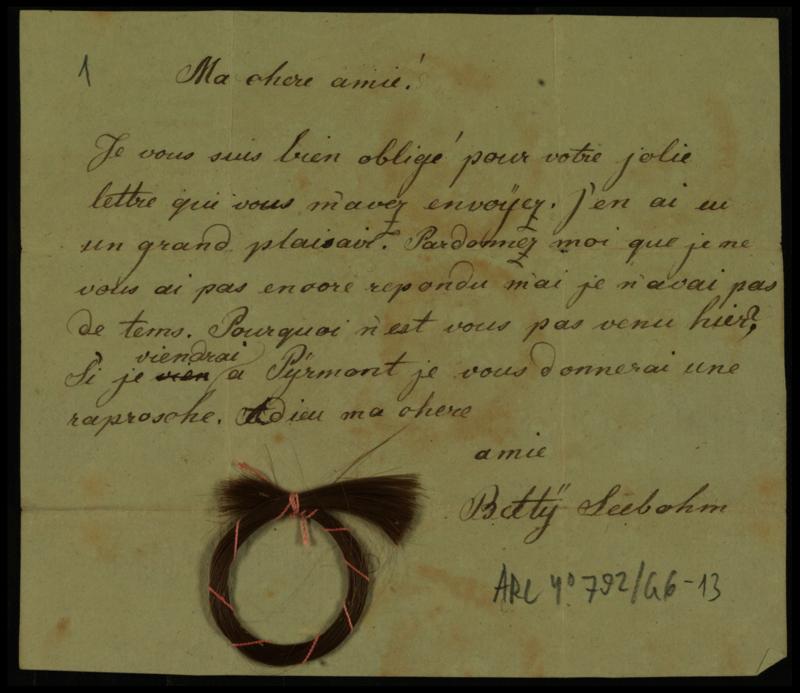 1
Ma chere amie!
Je vous suis bien obligé pour votre jolie
lettre qui vous m'avez envoÿez. J'en ai eu
un grand plaisair. Pardonnez moi que je ne
vous ai pas encore repondu mai je n'avai pas
de tems. Pourquoi n'est vous pas venu hier?
viendrai
Si je vien a Pÿrmont je vous donnerai une
raprosche. Adieu ma chere
amie
Bettÿ Seebohm
ARC 4° 792/G6-13